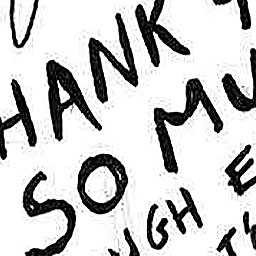 HANK
SO MU
UGH E
T'S